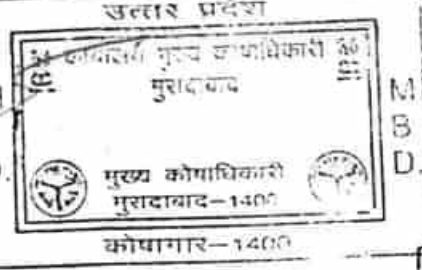 उत्तर प्रदेश
कार्यालय मुख्य कोषाधिकारी
मुरादाबाद
M
B
D.
मुख्य कोषाधिकारी
मुरादाबाद–1400
कोषागार–1400